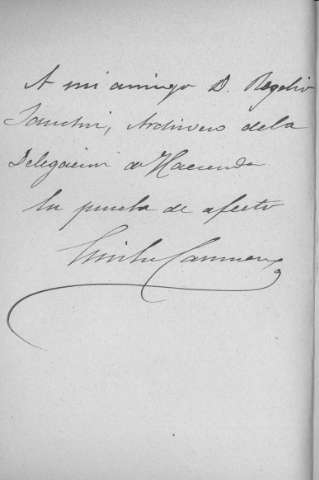 A mi amigo D. Rogelio
Sanchiz, Archivero de la
Delegacion de Hacienda
En prueba de afecto
Emilio